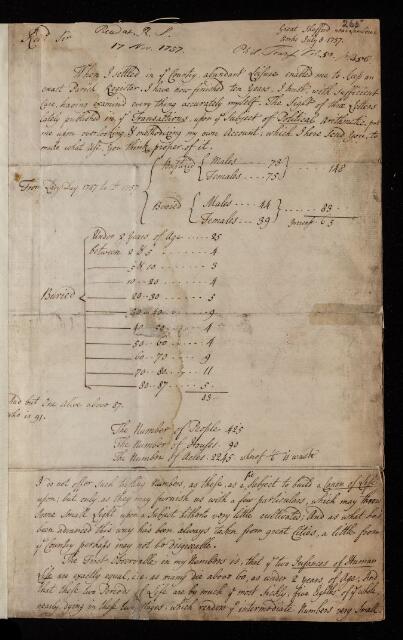 Read at R. S.
17 Nov. 1757.
Great Shefford near
Berks July 8 1757.
Phil. Trans. Vol. 50. p. 356
Rev.d Sir
When I settled in ye Country, abundant Leisure enabled me to keep an
exact Parish Register. I have now finished ten Years, I hope, with sufficient
Care, having examined every thing accurately myself. The Sight of those Letters
lately published in ye Transactions upon ye Subject of Political Arithmetic, put
me upon overlooking & methodizing my own Account, which I have send You, to
make what Use You think proper of it.
From Lady Day 1747 to Do 1757
Baptized Males - - - 73
Females - - - 75 148
Buried Males - - - 44
Females - - - 39 83
Increase 65
Buried
Under 2 Years of Age - - - 25
between 2 & 5 - - - 4
5 & 10 - - - 3
10 - 20 - - - 4
20 - 30 - - - 5
30 - 40 - - - 9
40 - 50 - - - 4
50 - 60 - - - 4
60 - 70 - - - 9
70 - 80 - - - 11
80 - 87 - - - 5
83
And but One alive above 87.
who is 91.
The Number of People 425
The Number of Houses 90
The Number of Acres 2245 whereof is waste
I do not offer such trifling Numbers, as these, as a Subject to build a Canon of Life
upon; but only as they may furnish us with a few particulars, which may throw
some small Light upon a Subject hitherto very little cultivated; And as what has
been advanced this way has been always taken from great Cities, a little from
ye Country perhaps may not be disagreeable.
The First Observable in my Numbers is, that ye two Infancies of Human
Life are exactly equal, i.e. as many die above 60, as under 2 years of Age; And
that these two Periods of Life are by much ye most sickly, five Eighths of ye whole
nearly dying in these two Stages; which renders ye intermediate Numbers very small.